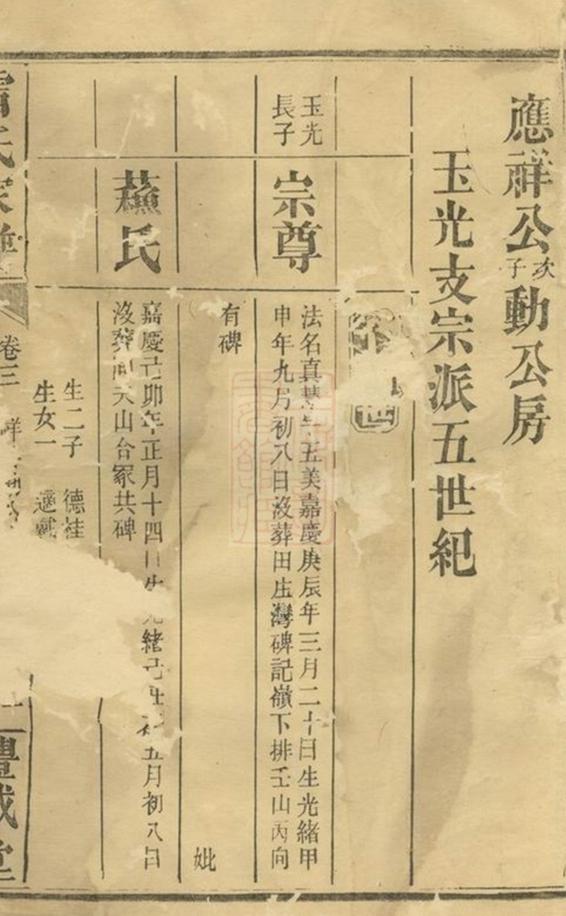 應祥公次子動公房
玉光支宗派五世紀
世
玉光長子
宗尊
法名真 五美嘉慶庚辰年三月二十日生光緒甲
申年九月初八日沒葬田庄灣碑記嶺下排壬山丙向
有碑
妣
蘇氏
嘉慶己卯年正月十四日生光緒己丑年五月初八日
沒葬 天山台冢共碑
生二子 德桂
生女一 適戴
氏家
卷三
祥
豊成堂